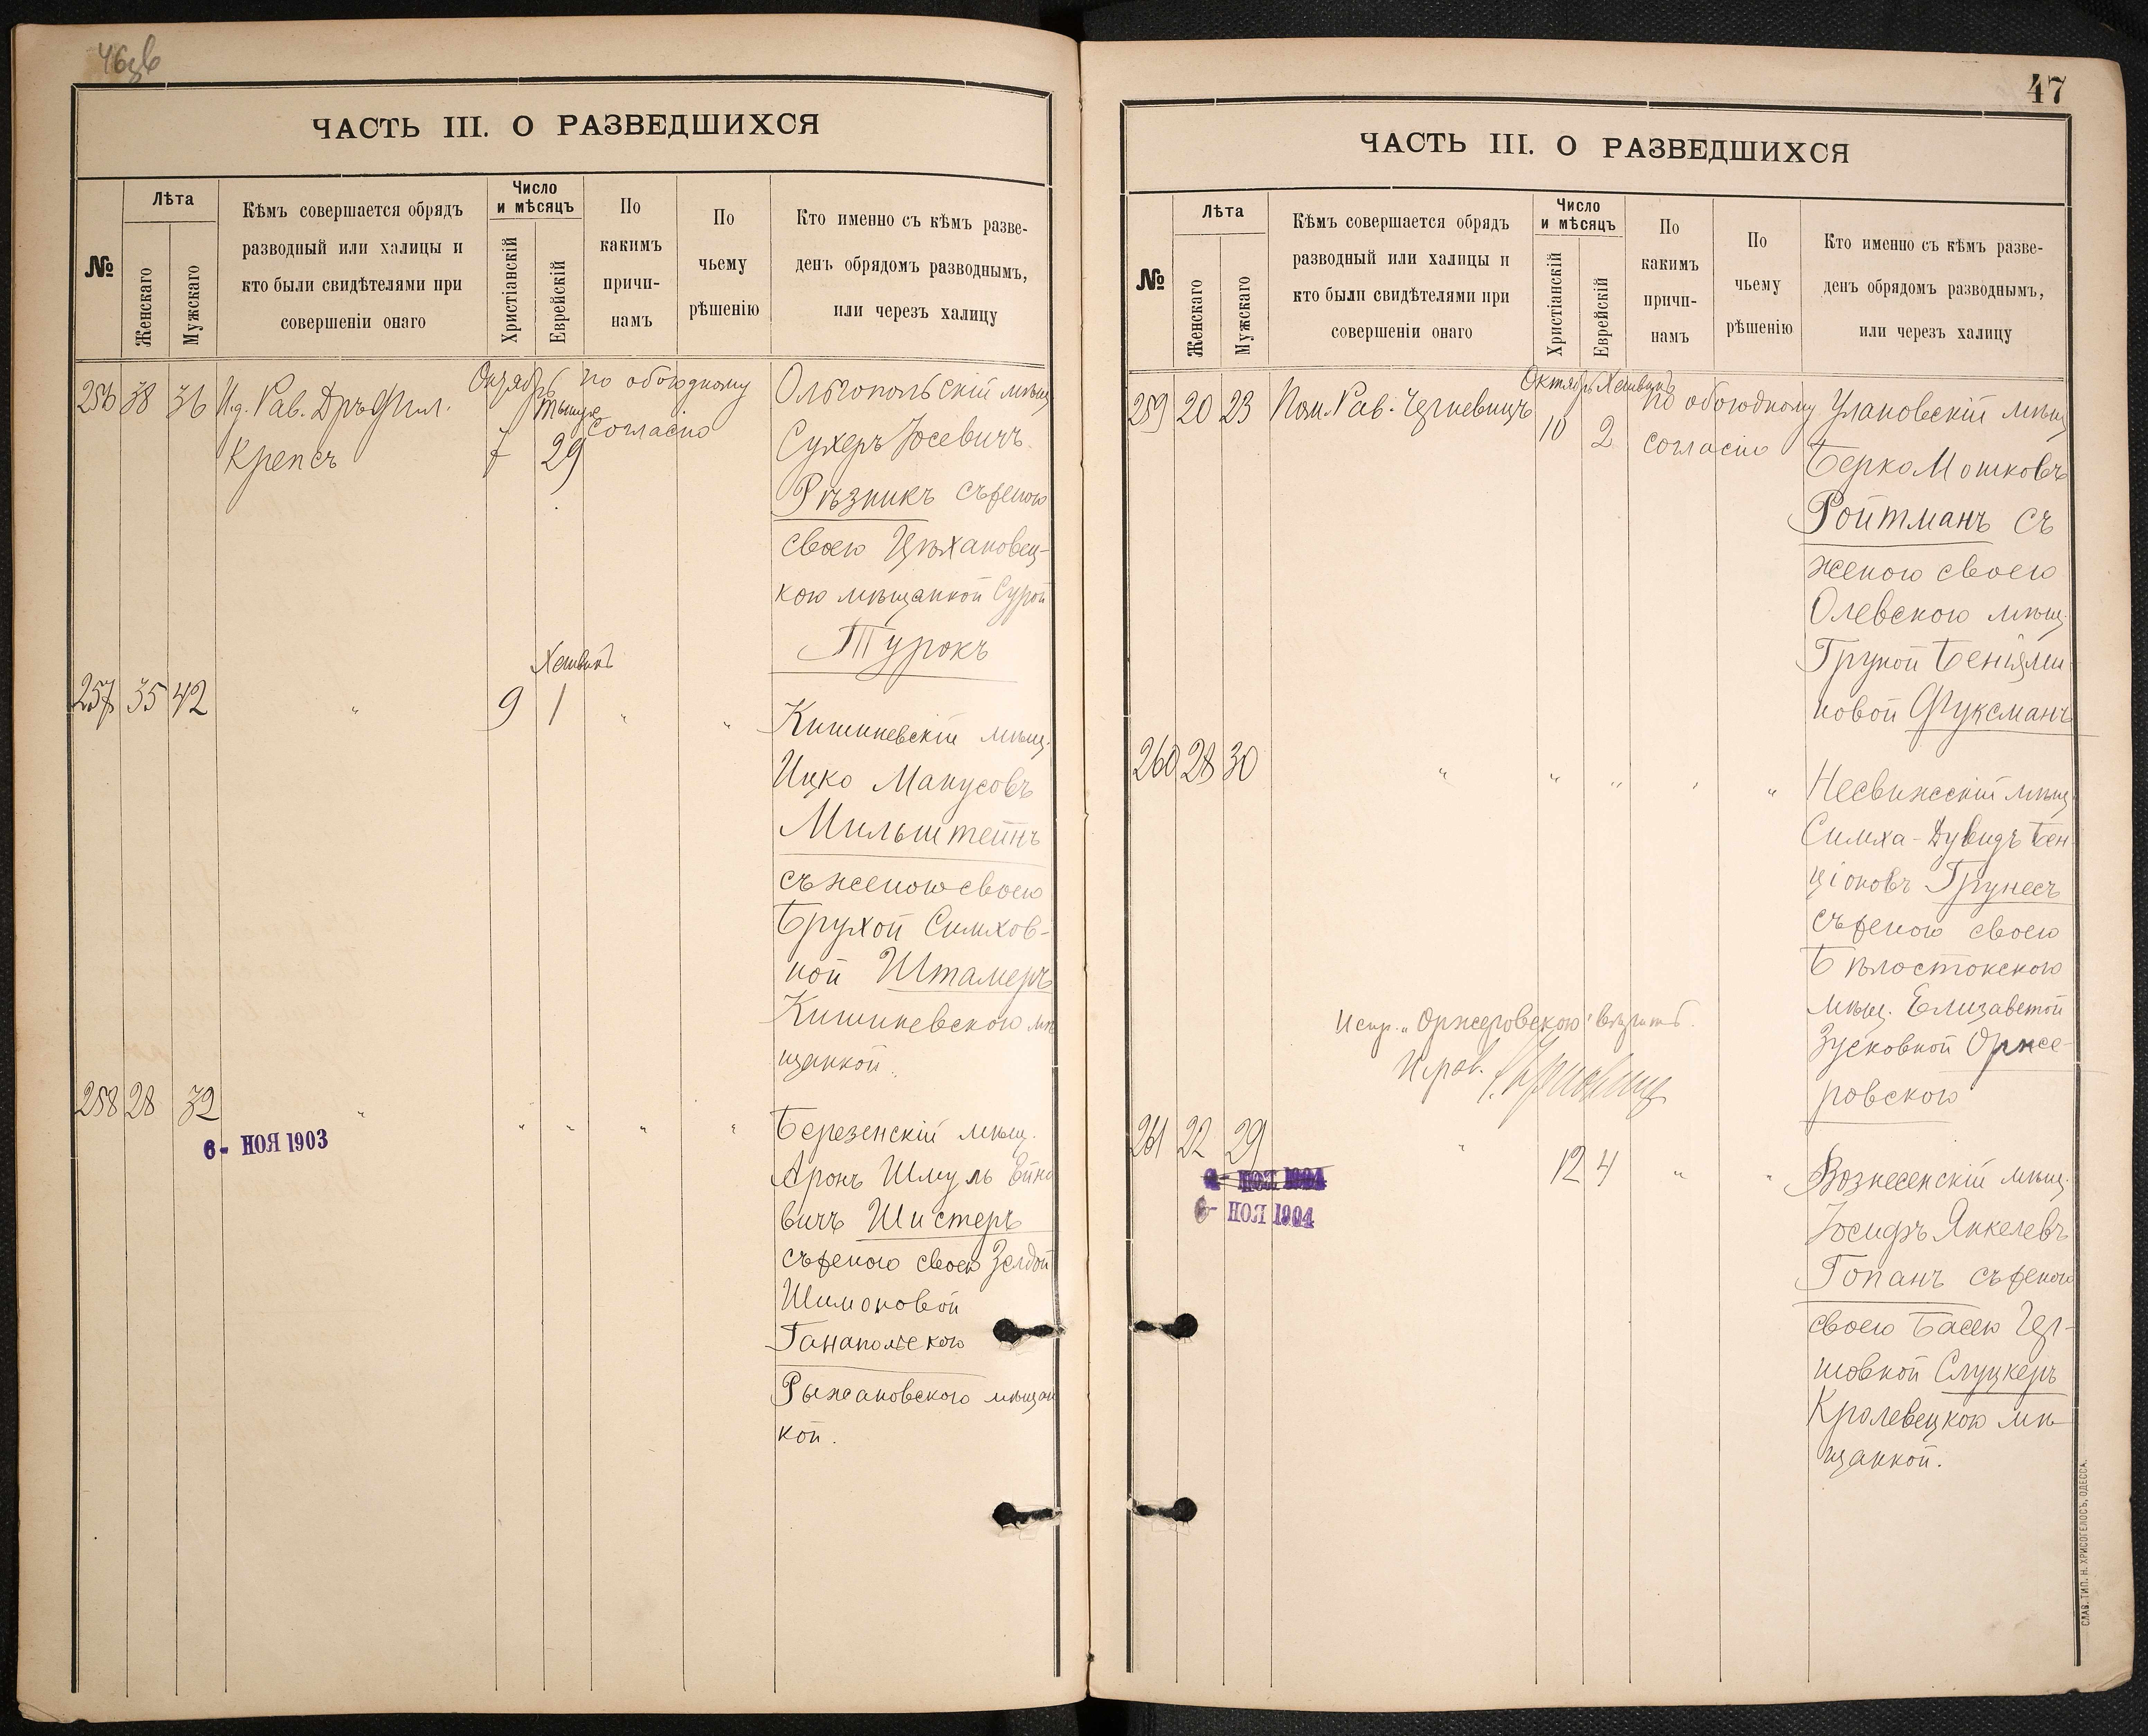 ЧАСТЬ III. О РАЗВЕДШИХСЯ
№
Лѣта
Женскаго
Мужскаго
Кѣмъ совершается обрядъ
разводный или халицы и
кто были свидѣтелями при
совершеніи онаго
Число
и мѣсяцъ
Христіанскій
Еврейскій
По
какимъ
причи-
намъ
По
чьему
рѣшенію
Кто именно съ кѣмъ разве-
денъ обрядомъ разводнымъ,
или черезъ халицу
256 38 36 И.д. Рав. Дръ Фил.
Крепсъ
Октябрь
7 29
по обоюдному
согласію
Ольгопольскій мѣщ.
Сухеръ Іосевичъ
Рѣзникъ съ женою
своею Цѣхановец-
кою мѣщанкой Сурой
Турокъ
Хешванъ
257 35 42 " 9 1 " "
Кишиневскій мѣщ.
Ицко Манусовъ
Мильштейнъ
съ женою своею
Брухой Симхов-
ной Штамеръ
Кишиневскою мѣ
щанкой.
258 28 32 " " " " "
6- НОЯ 1903
Березенскій мѣщ.
Аронъ Шмуль
вичъ Шистеръ
съ женою своею Зелдой
Шимоновой
Ганапольскою
Рыжановскою мѣщан
кой.
47
ЧАСТЬ III. О РАЗВЕДШИХСЯ
№
Лѣта
Женскаго
Мужскаго
Кѣмъ совершается обрядъ
разводный или халицы и
кто были свидѣтелями при
совершеніи онаго
Число
и мѣсяцъ
Христіанскій
Еврейскій
По
какимъ
причи-
намъ
По
чьему
рѣшенію
Кто именно съ кѣмъ разве-
денъ обрядомъ разводнымъ,
или черезъ халицу
259 20 23 Пом. Рав. Черневицъ
Октябрь Хешванъ
10 2
по обоюдному
согласію
Улановскій мѣщ
Берко Мошковъ
Ройтманъ съ
женою своею
Олевскою мѣщ.
Груной Беніями
новой Фуксманъ
260 28 30 " " " " "
Несвижскій мѣщ
Симха-Дувидъ Бен-
ціоновъ Грунесъ
съ женою своею
Бѣлостокскою
мѣщ. Елизаветой
Зусковной Орже-
ровскою
Испр. „Оржеровскою" вѣрить.
И. рав.
261 22 29 " 12 4 " "
6- НОЯ 1904
Вознесенскій мѣщ.
Іосифъ Янкелевъ
Гопанъ съ женою
своею Басею Гер-
шовной Слуцкеръ
Кролевецкою мѣ-
щанкой.
СЛАВ. ТИП. Н. ХРИСОГЕЛОСЪ, ОДЕССА.